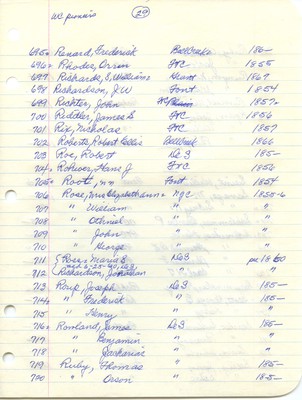 WC pioneers (29)
695 Renard, Frederick Bell Creek 186-
696 Rhodes, Orrin FtC 1855
697 Richards, E, William Hunt 1867
698 Richardson, J W Font 1854
699 Richter, John 1857
700 Riddler, James S FtC 1856
701 Rix, Nicholas FtC 1857
702 Roberts, Robert Bell Creek 1866
703 Roe, Robert DeS 185-
704 Rohwer, Hans J FtC 1856
705 Root, Font 1854
706 Rose, Mrs Elizabeth Ann FtC 1855-6
707 " William " "
708 " Othniel " "
709 " John " "
710 " George " "
711 Rose, Maria S DeS pre 1860
712 Richardson, Jonathan " "
713 Roup, Joseph DeS 185-
714 " Frederick " 185-
715 " Henry " 185-
716 Rowland, James DeS 185-
717 " Benjamin " "
718 " Zachariah " "
719 Ruby, Thomas " 185-
720 " Orson " 185-